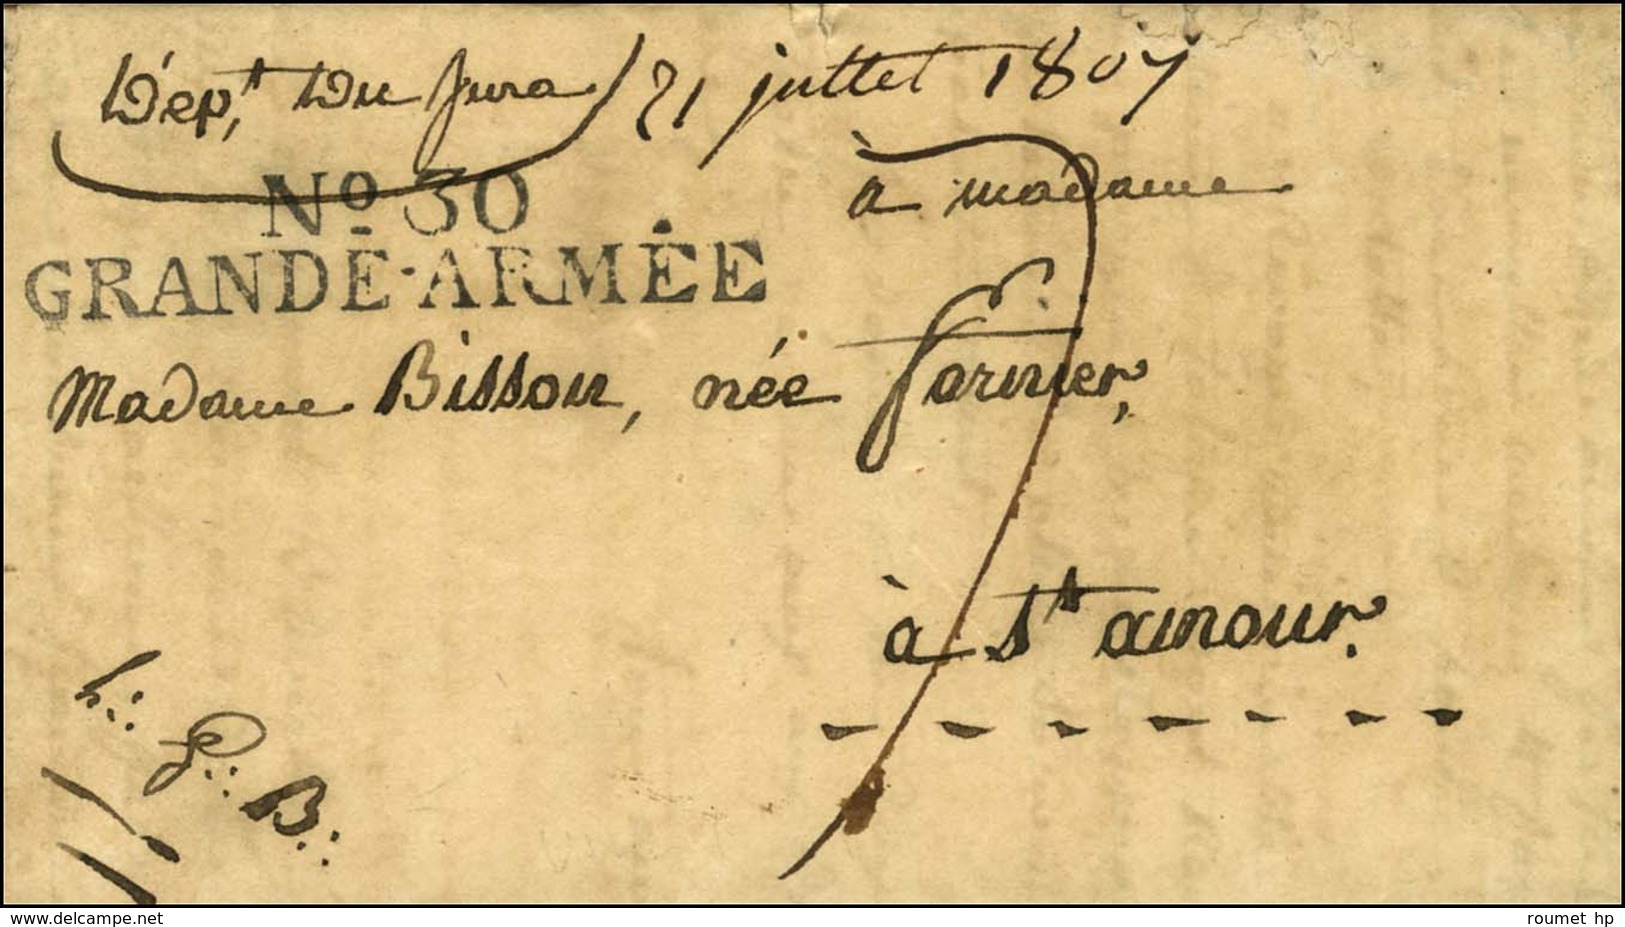 Dép.t Du Jura 21 juillet 1807
à madame
No 30
GRANDE-ARMÉE
Madame Bisson, née fornier,
à St amour.
h∴ G∴ B∴
www.delcampe.net
roumet hp